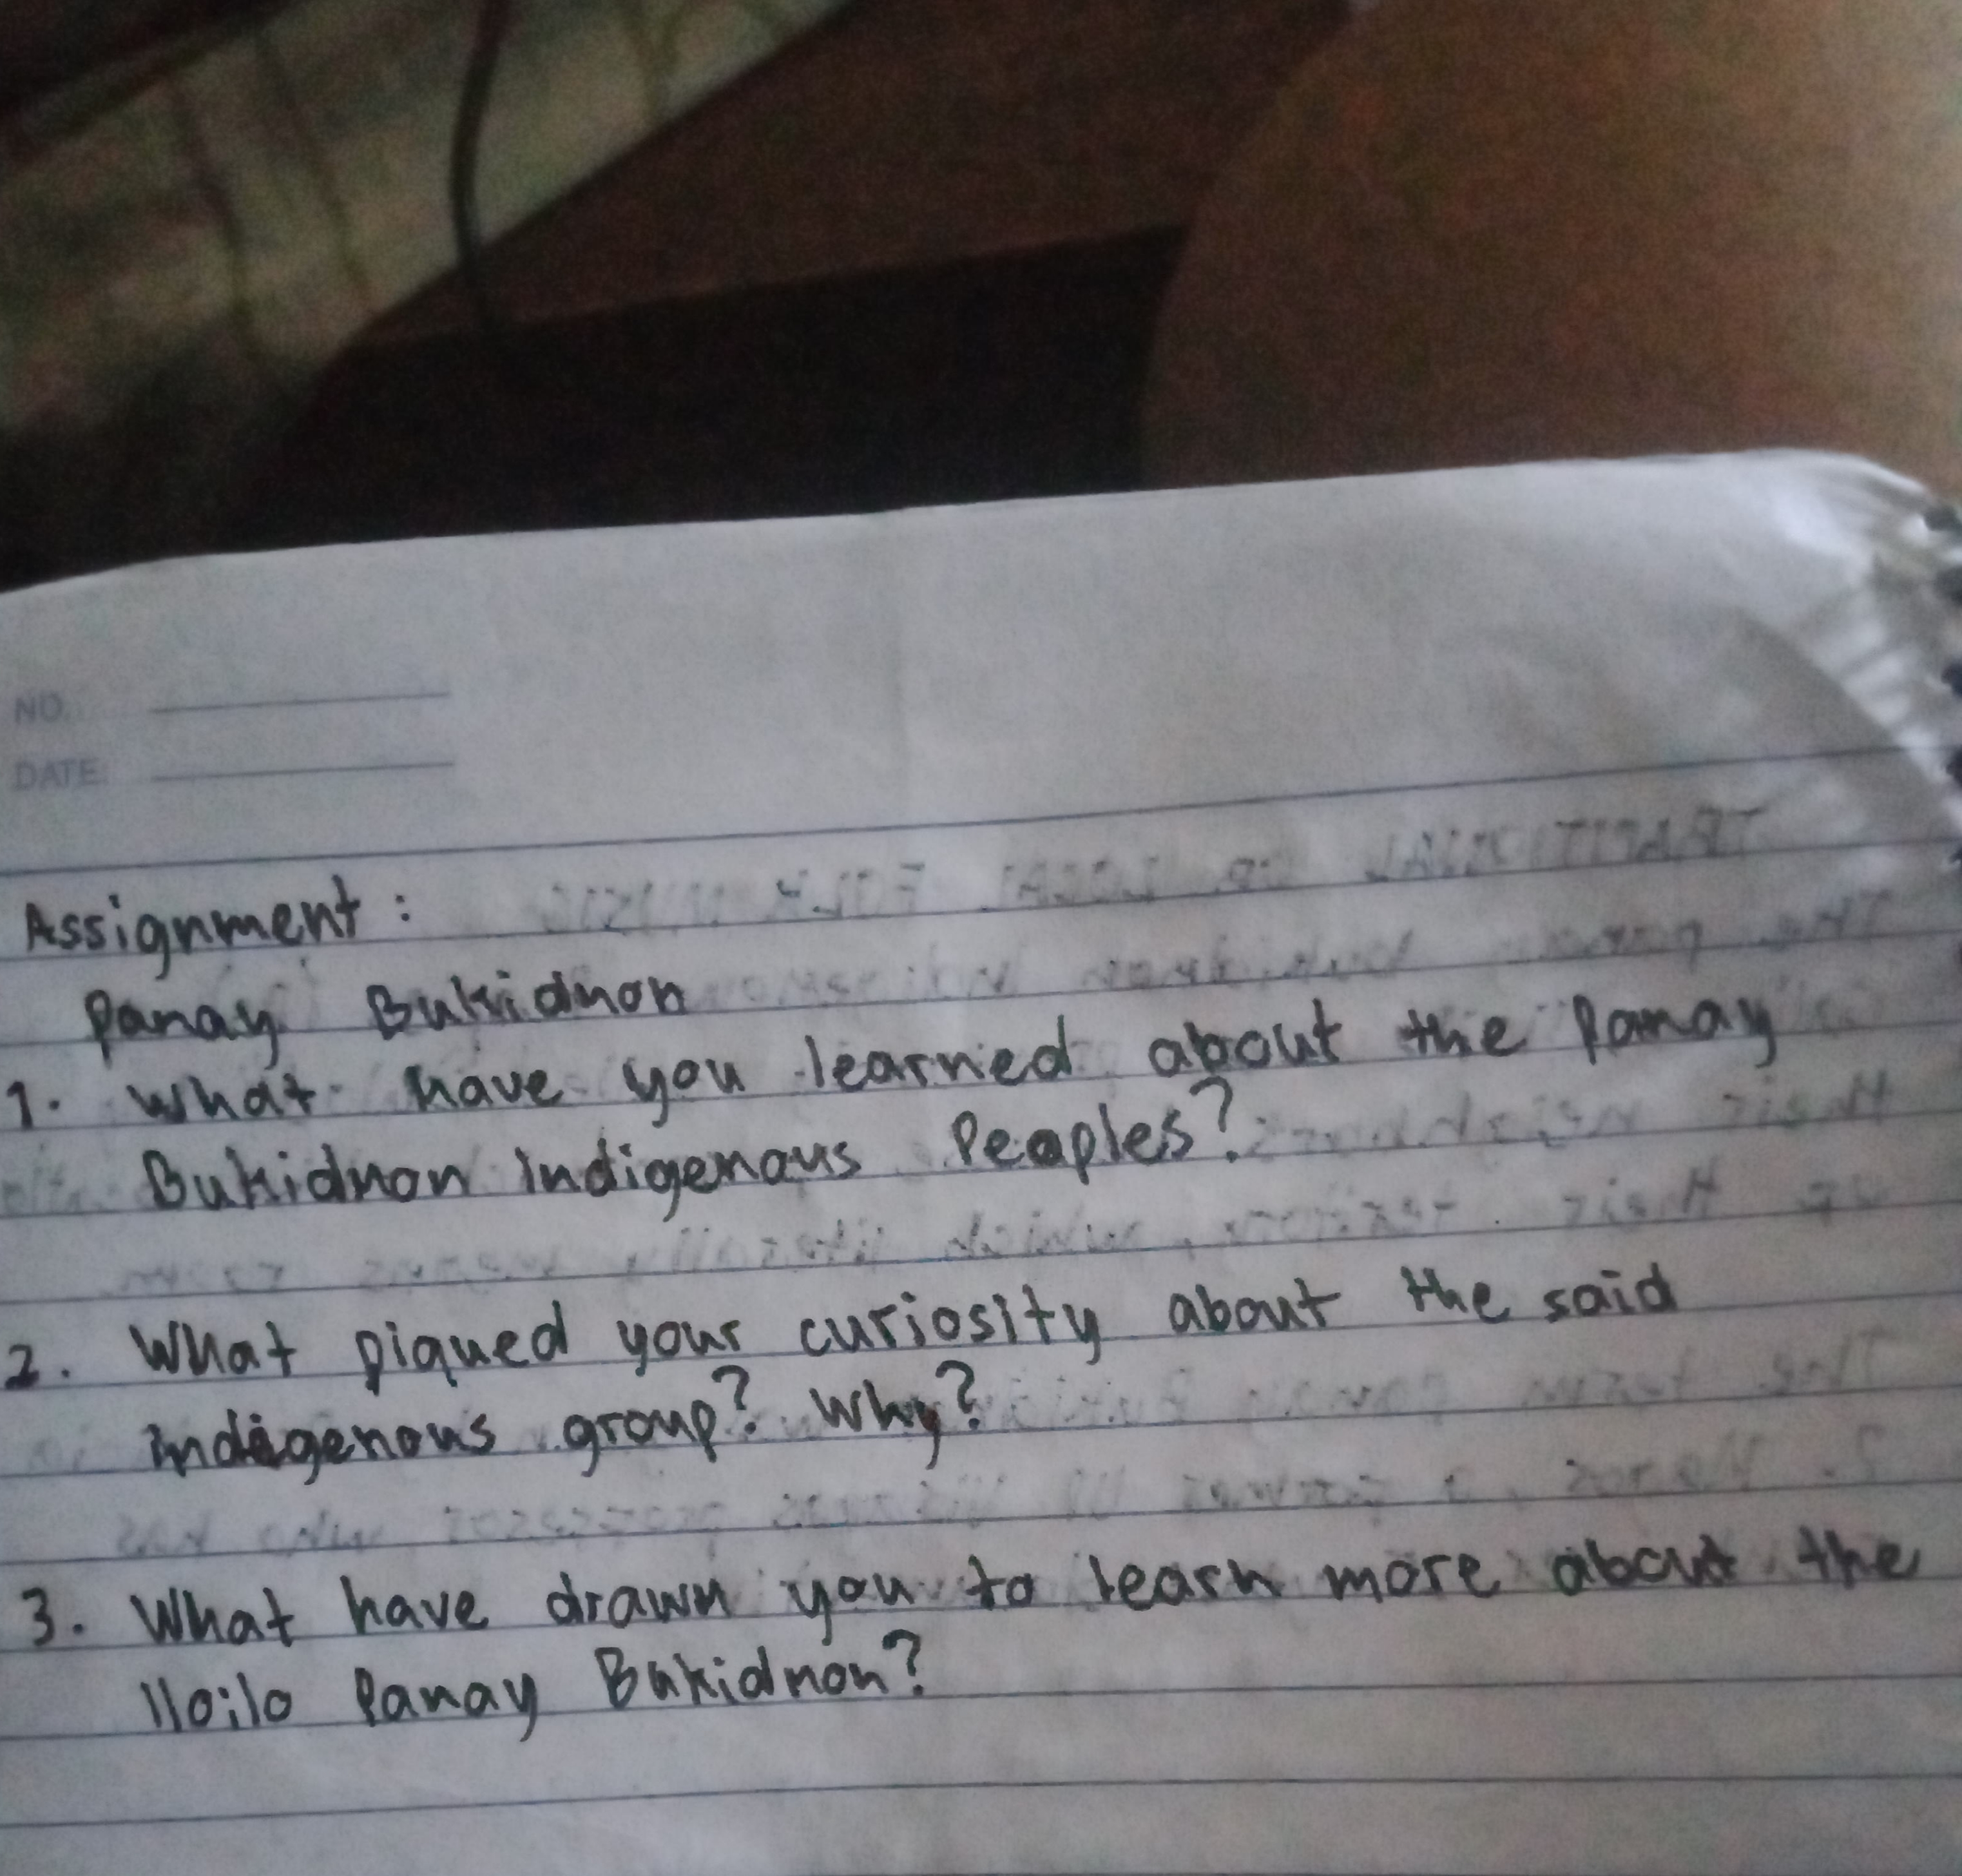 NO.
DATE:
Assignment:
Panay Bukidnon
1. What have you learned about the Panay
Bukidnon Indigenous Peoples?
2. What piqued your curiosity about the said
indigenous group? Why?
3. What have drawn you to learn more about the
Iloilo Panay Bukidnon?